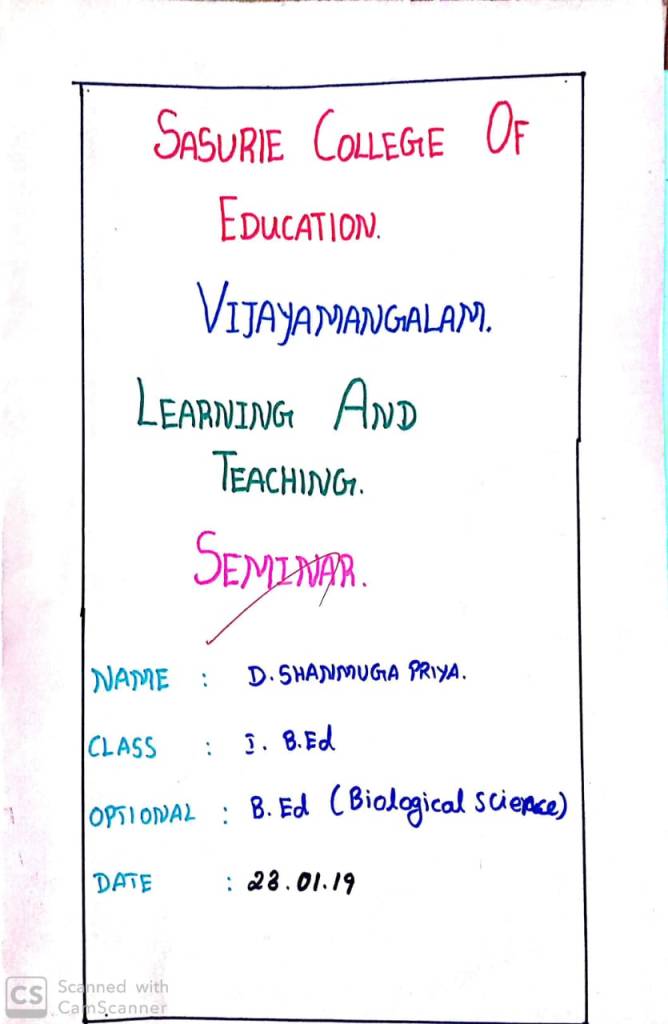 SASURIE COLLEGE OF
EDUCATION.
VIJAYAMANGALAM.
LEARNING AND
TEACHING.
SEMINAR.
NAME : D. SHANMUGA PRIYA.
CLASS : I. B.Ed
OPTIONAL : B. Ed (Biological science)
DATE : 28.01.19
CS Scanned with
CamScanner